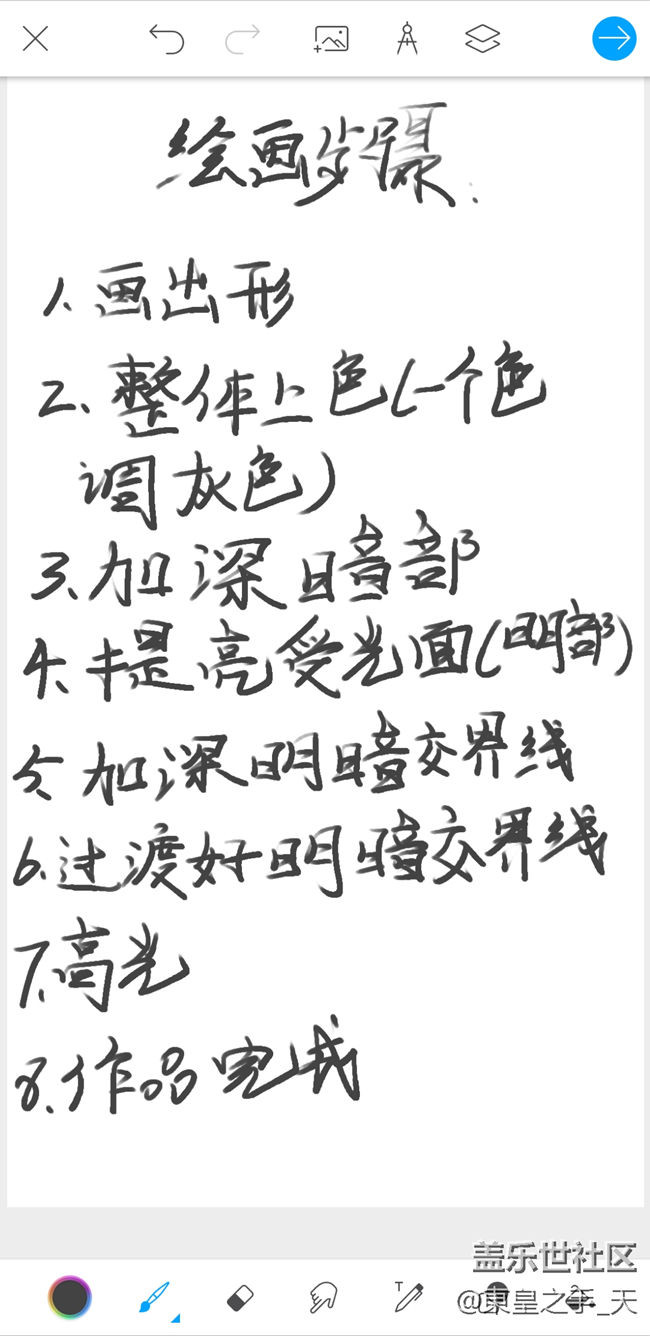 绘画步骤.
1.画出形
2、整体上色(一个色
调灰色)
3、加深暗部
4、提亮受光面(明部)
5、加深明暗交界线
6.过渡好明暗交界线
7.高光
8.作品完成
T
盖乐世社区
@東皇之手_天